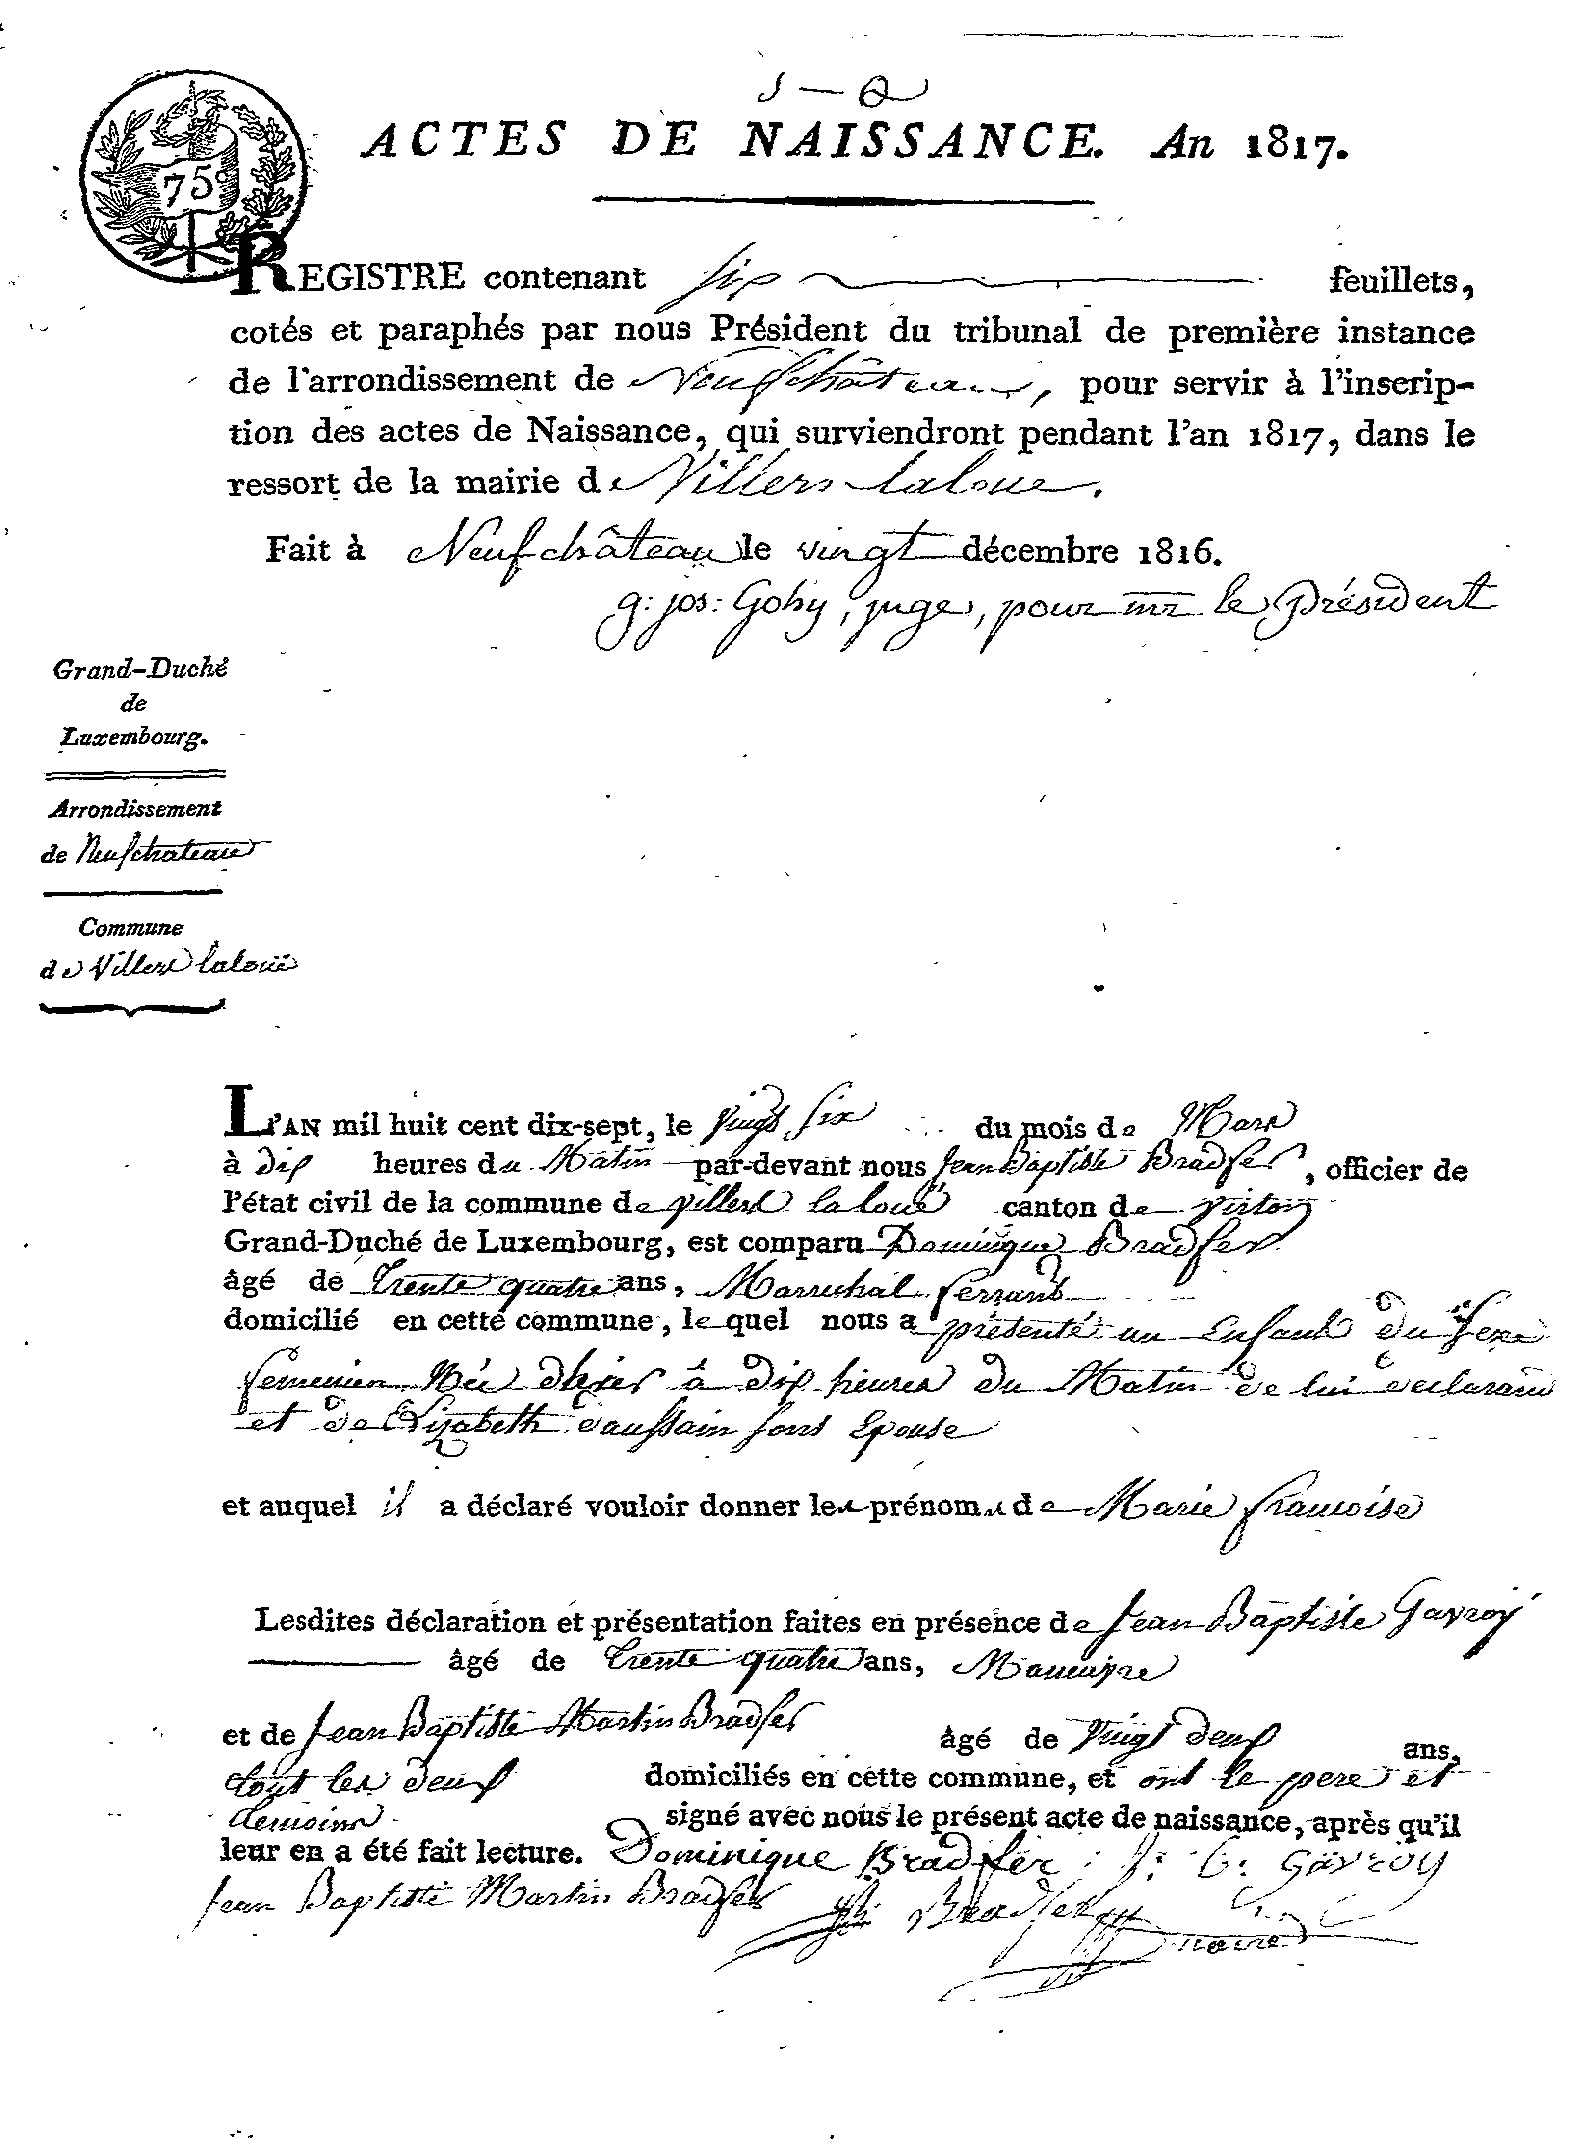 ACTES DE NAISSANCE. An 1817.
75
REGISTRE contenant six feuillets,
cotés et paraphés par nous Président du tribunal de première instance
de l'arrondissement de Neufchâteau, pour servir à l'inscrip-
tion des actes de Naissance, qui surviendront pendant l'an 1817, dans le
ressort de la mairie de Villers laloue.
Fait à Neufchâteau le vingt décembre 1816.
g: jos: Gohy, juge, pour mr le Président
Grand-Duché
de
Luxembourg.
Arrondissement
de Neufchateau
Commune
de Villers laloüe
L'AN mil huit cent dix-sept, le vingt six du mois de Mars
à dix heures du Matin par-devant nous Jean Baptiste Bradfer, officier de
l'état civil de la commune de villers la loue canton de virton
Grand-Duché de Luxembourg, est comparu Dominique Bradfer
âgé de trente quatre ans, Marechal ferrant
domicilié en cette commune, le quel nous a présenté un Enfant du sexe
femeinien Née dhier à dix heures du Matin de lui declarant
et de Elizabeth daussain sont Epouse
et auquel il a déclaré vouloir donner les prénoms de Marie francoise
Lesdites déclaration et présentation faites en présence de Jean Baptiste Gavroy
âgé de trente quatre ans,
et de Jean Baptiste Martin Bradfer âgé de vingt deux ans,
tout les deux domiciliés en cette commune, et ont le pere et
temoins signé avec nous le présent acte de naissance, après qu'il
leur en a été fait lecture. Dominique Bradfer : J: b: Gavroy
Jean Baptiste Martin Bradfer Bradfer
maire